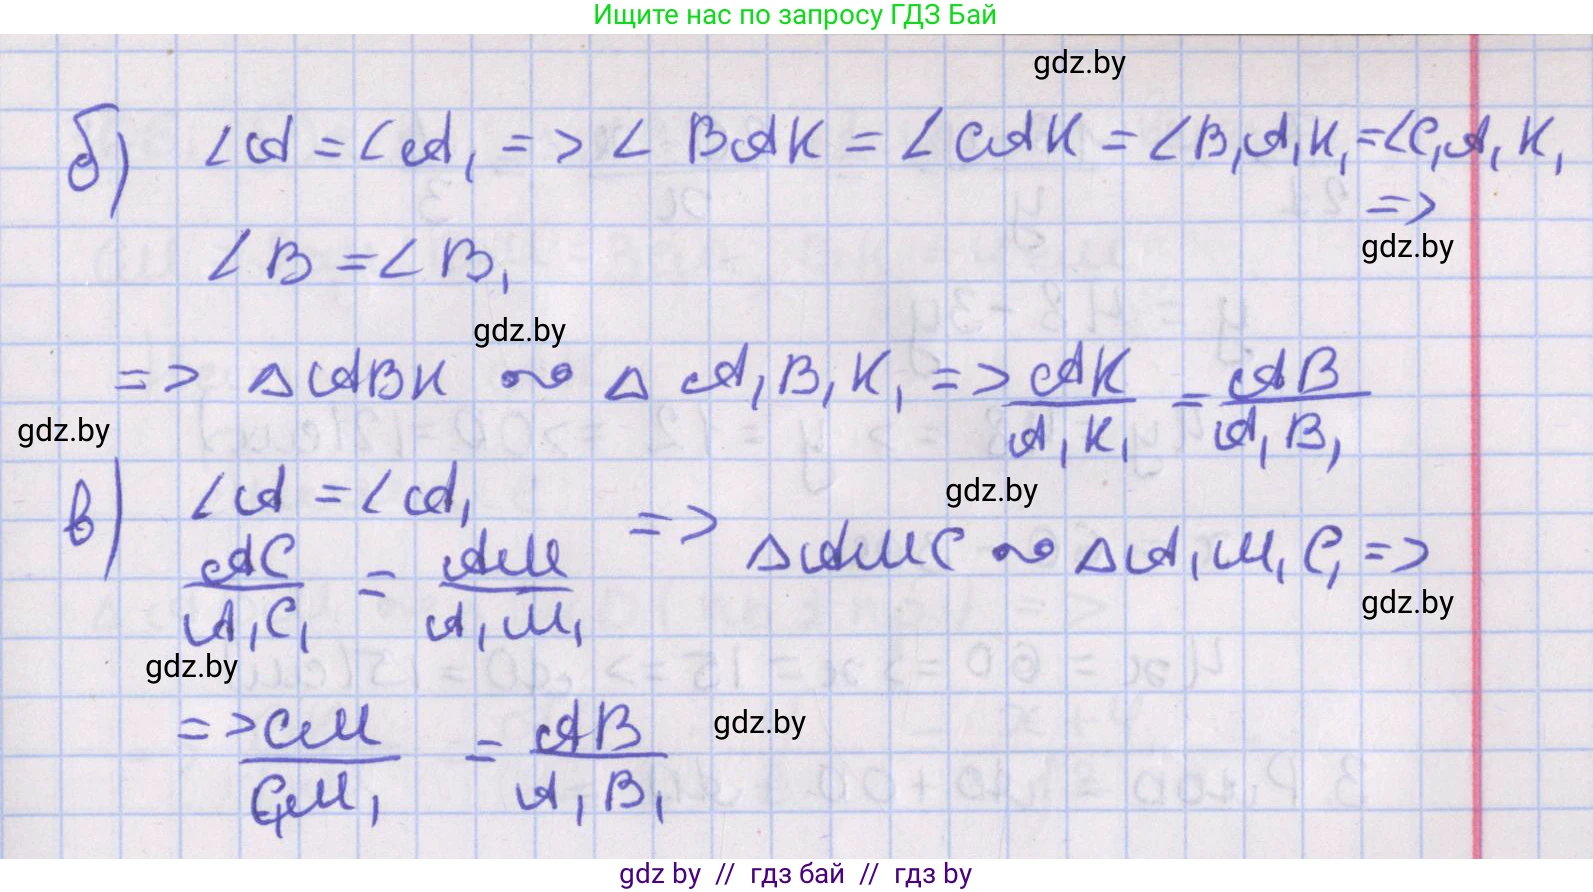 Ищите нас по запросу ГДЗ Бай
gdz.by
б) ∠A = ∠A₁ => ∠ BAK = ∠CAK = ∠B₁A₁K₁ = ∠C₁A₁K₁
=>
gdz.by
∠B = ∠B₁
gdz.by
=> △ABK ∾ △ A₁B₁K₁ => AK/A₁K₁ = AB/A₁B₁
gdz.by
gdz.by
в) ∠A = ∠A₁
AC/A₁C₁ = AM/A₁M₁ => △AMC ∾ △A₁M₁C₁ =>
gdz.by
gdz.by
=> CM/C₁M₁ = AB/A₁B₁
gdz.by
gdz by // гдз бай // гдз by